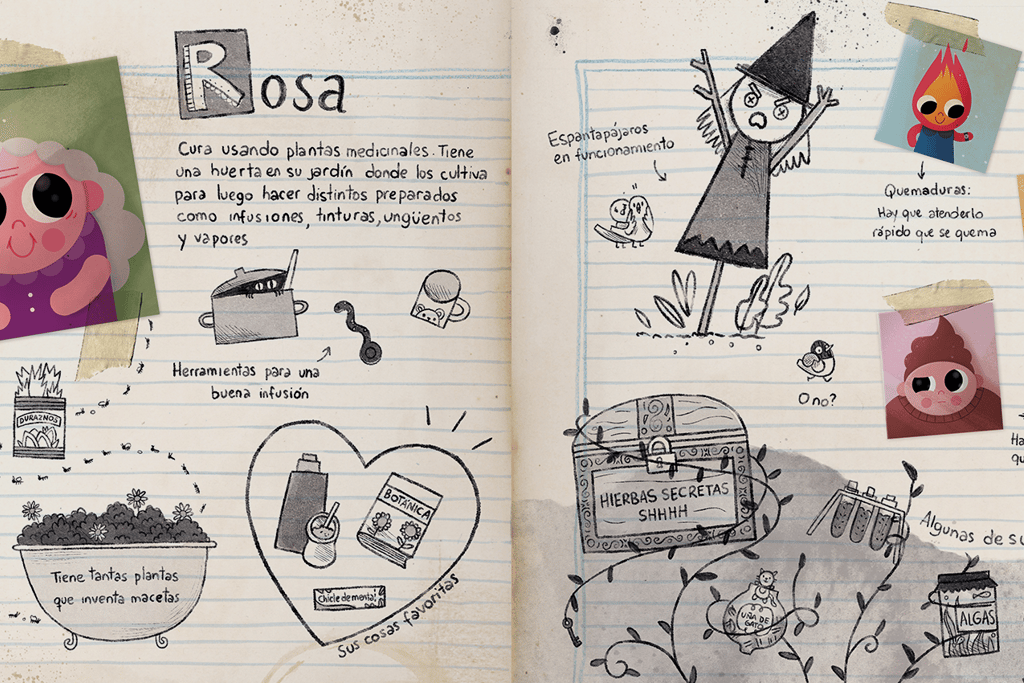 Rosa
Cura usando plantas medicinales. Tiene
una huerta en su jardín donde los cultiva
para luego hacer distintos preparados
como infusiones, tinturas, ungüentos
y vapores
Herramientas para una
buena infusión
DURAZNOS
Tiene tantas plantas
que inventa macetas
BOTÁNICA
Chicle de menta!
Sus cosas favoritas
Espantapájaros
en funcionamiento
O no?
Quemaduras:
Hay que atenderlo
rápido que se quema
HIERBAS SECRETAS
SHHHH
Algunas de su
UÑA DE
GATO
ALGAS